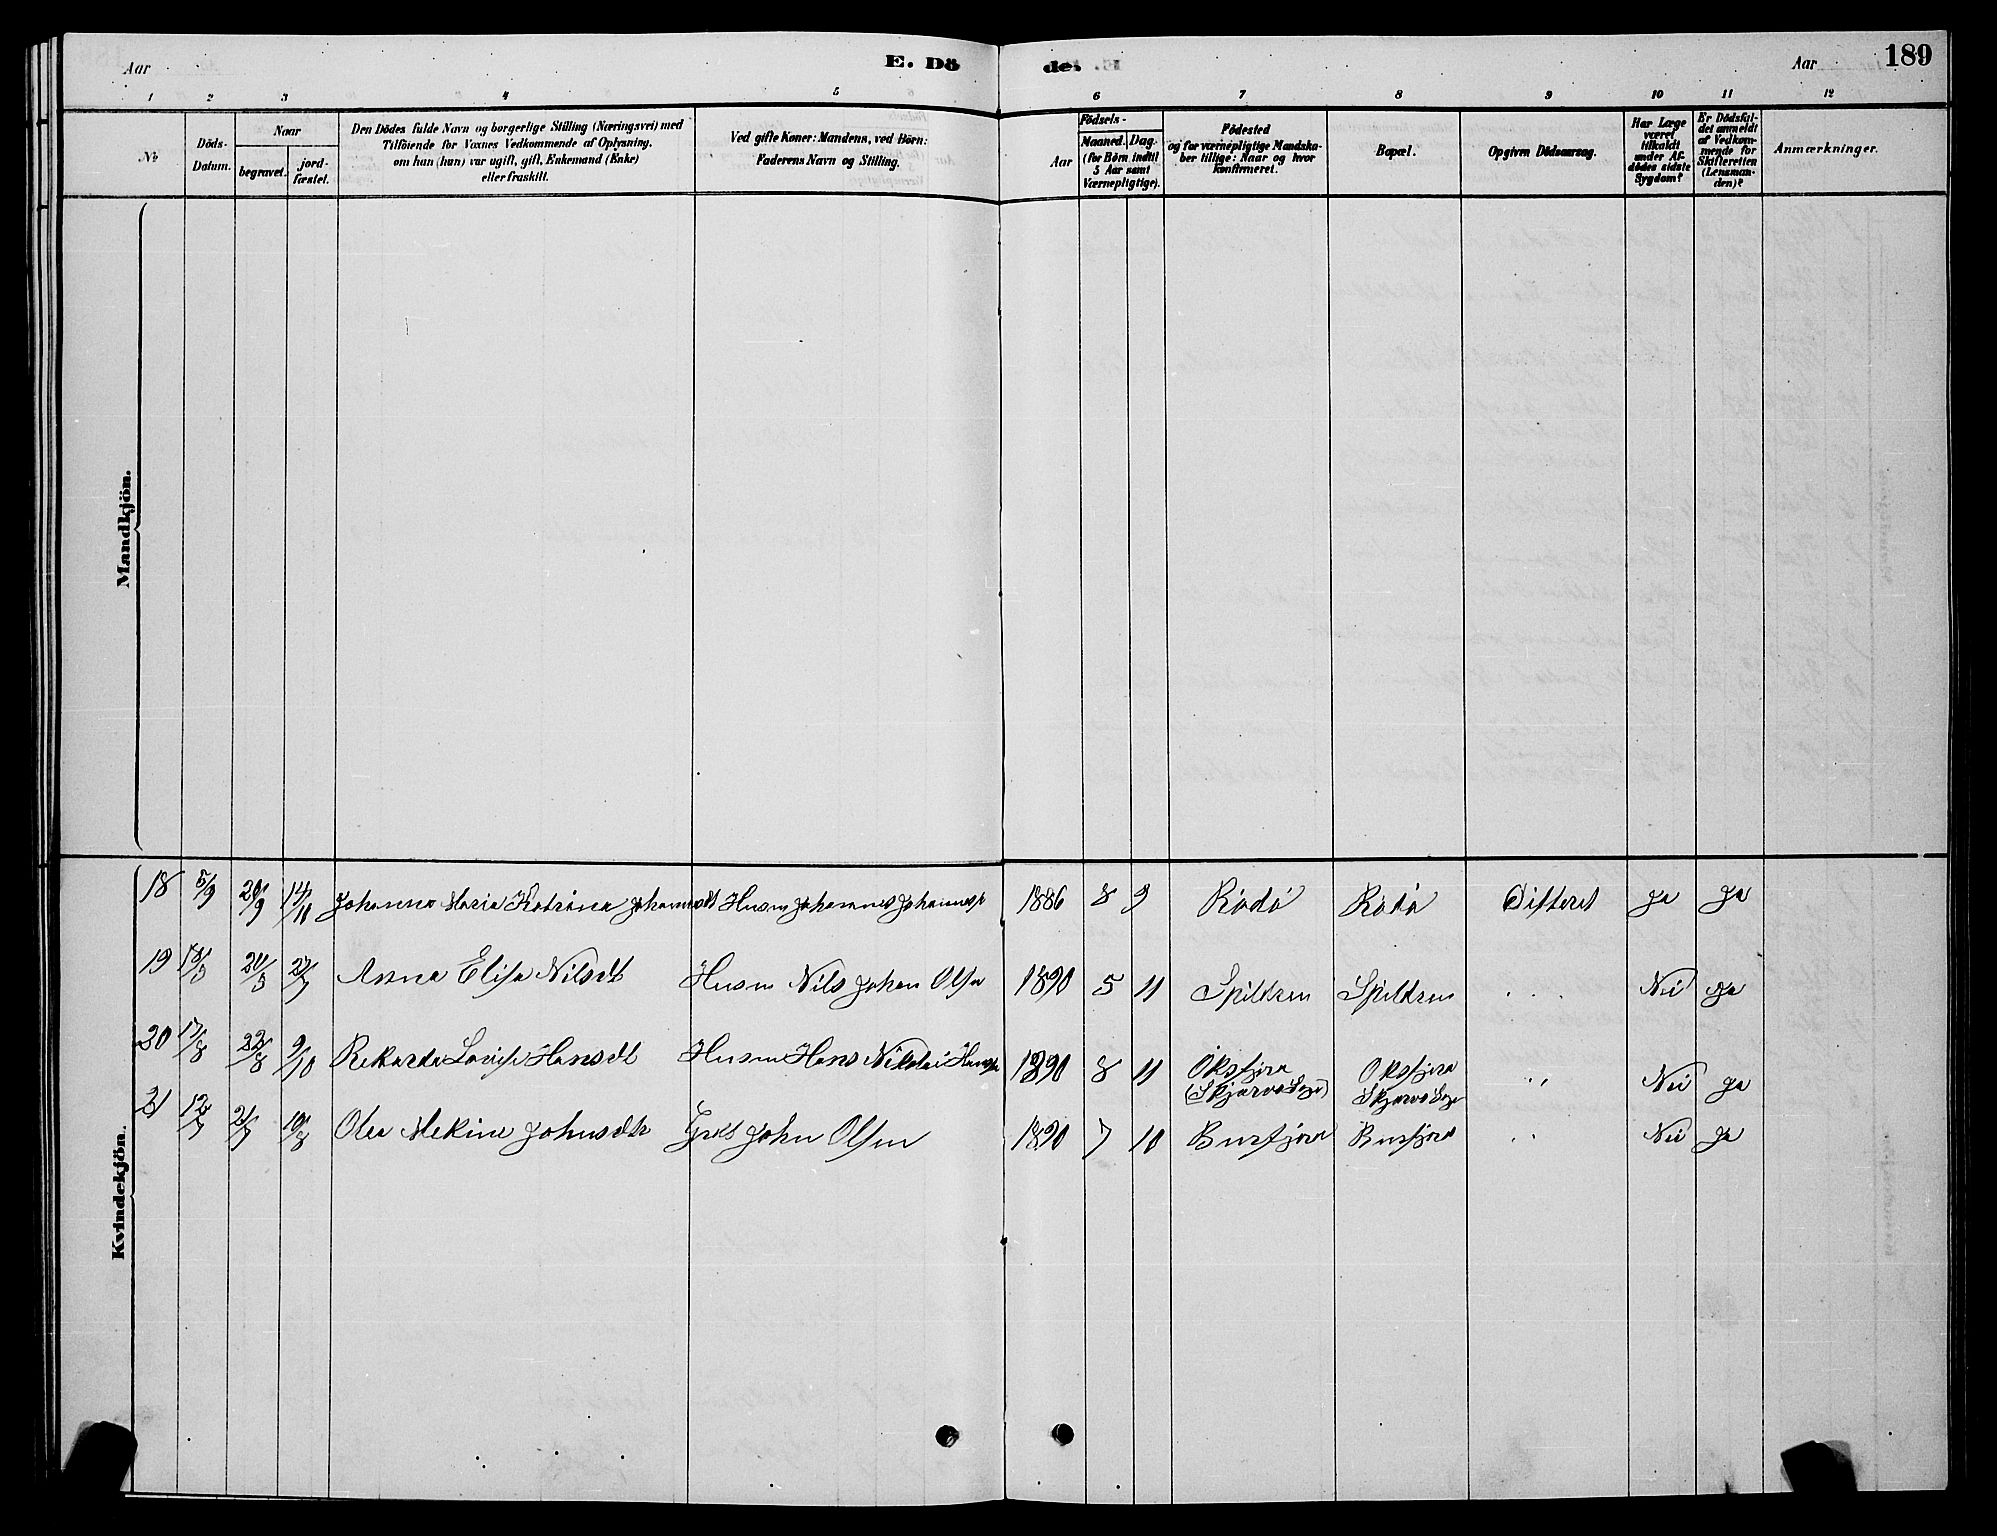 Aar E. Dö de. Aar 189
1 2 3 4 5 6 7 8 9 10 11 12
No
Döds-Datum.
Naar
begravet.
jord-fæstet.
Den Dödes fulde Navn og borgerlige Stilling (Næringsvei) med
Tilföiende for Voxnes Vedkommende af Oplysning,
om han (hun) var ugift, gift, Enkemand (Enke)
eller fraskilt.
Ved gifte Koner: Mandens, ved Börn:
Faderens Navn og Stilling.
Födsels-
Aar
Maaned. Dag.
(for Börn indtil
5 Aar samt
Værnepligtige).
Födested
og for værnepligtige Mandska-
ber tillige: Naar og hvor
konfirmeret.
Bopæl.
Opgiven Dödsaarsag.
Har Læge
været
tilkaldt
under Af-
dödes sidste
Sygdom?
Er Dödsfal-
det anmeldt
af Vedkom-
mende for
Skifteretten
(Lensman-
den)?
Anmærkninger.
Mandkjön.
Kvindekjön.
18 5/9 20/9 Johanna Maria Katrina Husm Johannes Johannes 1886 8 9 Rödö Rödö Difteret ja ja
19 20/5 Anna Elisa Nilsdt Husm Nils Johan Olsn 1890 5 11 Spildren Spildren Nei ja
20 17/8 22/8 9/10 Rikarda Hansdt Husm Hans Nikolai 1890 8 11 Öksfjord Oksfjord ,, Nei ja
(Skjærvø Sogn) Skjærvø Sogn
21 12/7 21/7 10/8 Olea Mekine Johnsdtr John Olsen 1890 7 10 Burfjord Burfjord ,, Nei ja